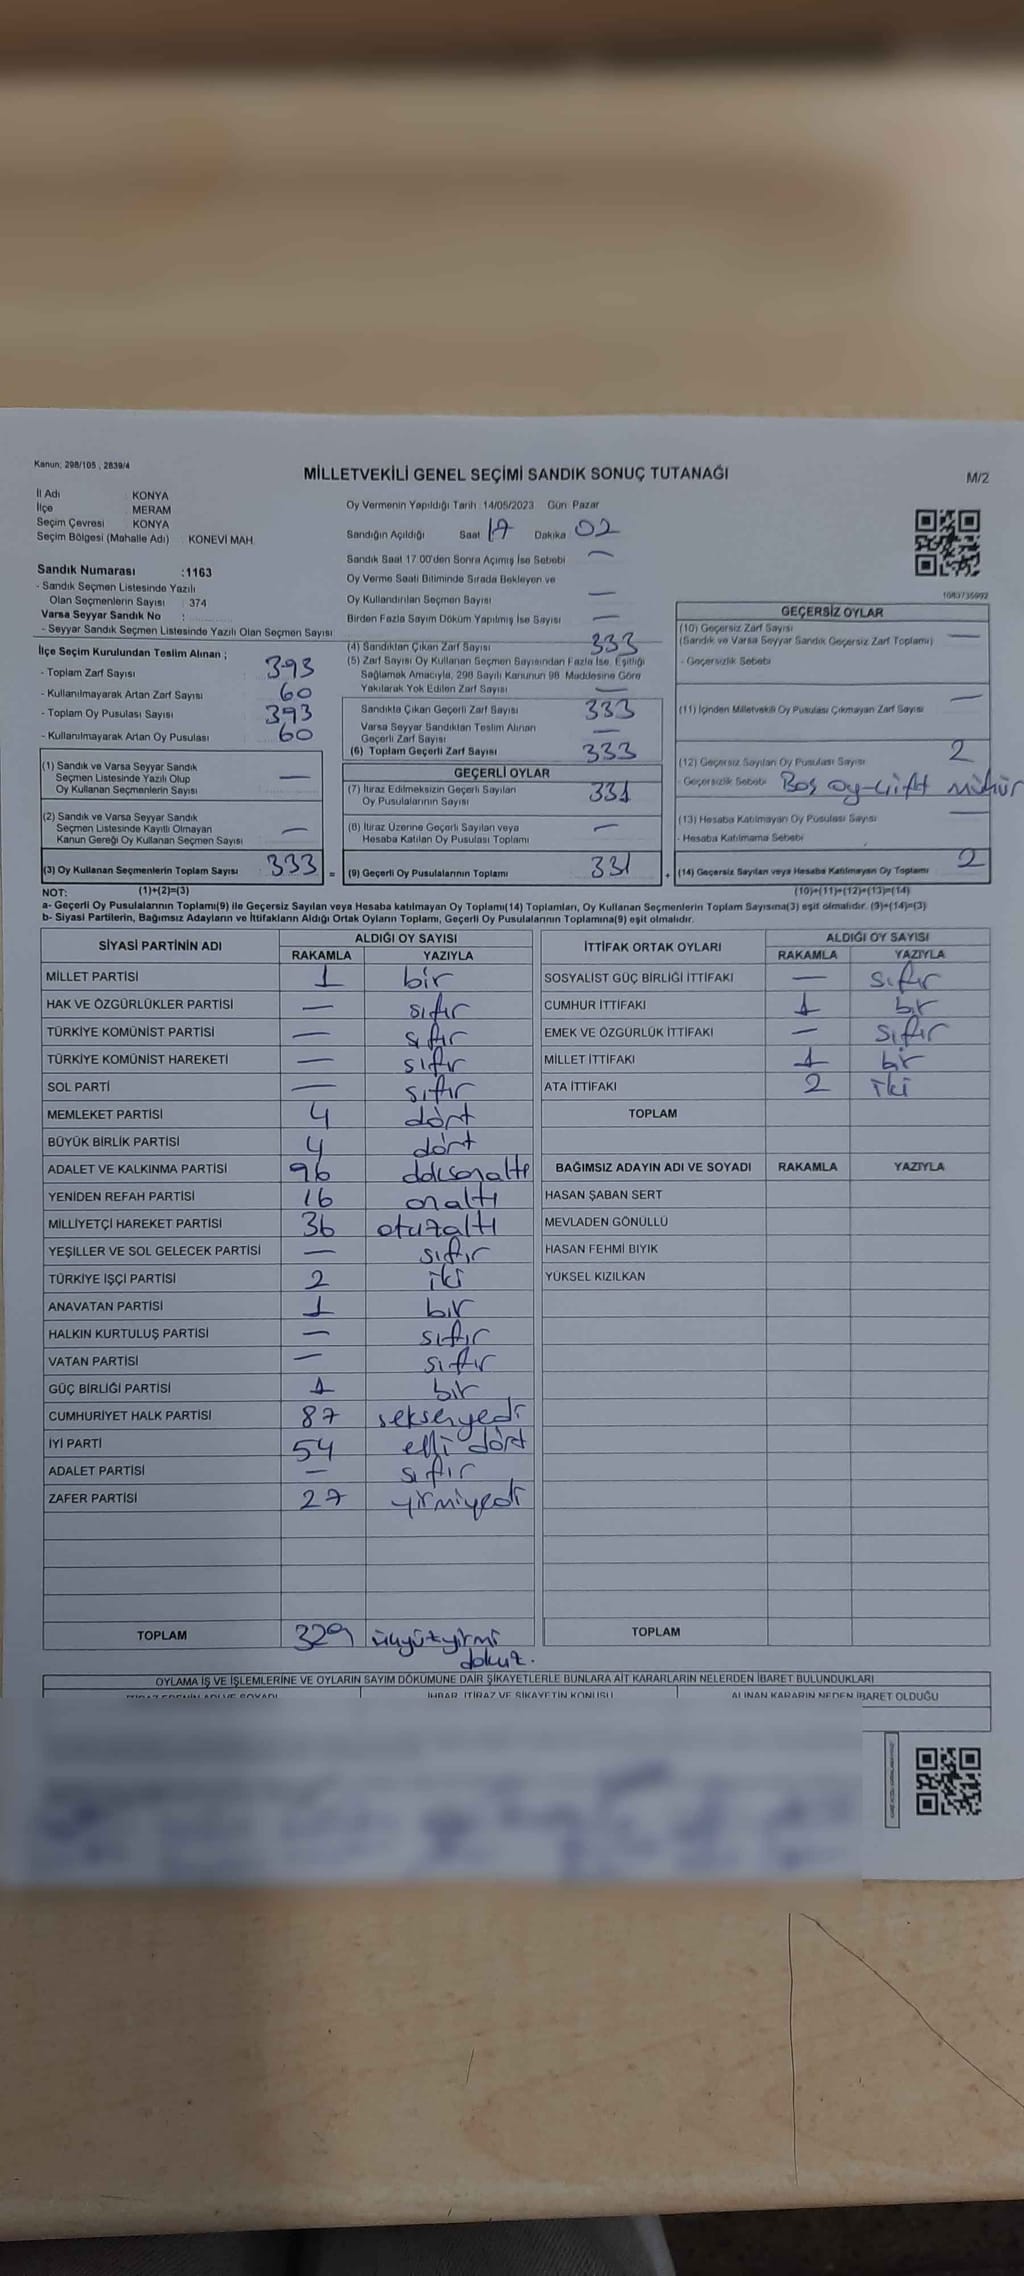 Kanun; 298/105 , 2839/4
MİLLETVEKİLİ GENEL SEÇİMİ SANDIK SONUÇ TUTANAĞI
M/2
İl Adı KONYA
İlçe MERAM
Seçim Çevresi KONYA
Seçim Bölgesi (Mahalle Adı) : KONEVİ MAH
Oy Vermenin Yapıldığı Tarih : 14/05/2023 Gün: Pazar
Sandığın Açıldığı Saat 17 Dakika 02
Sandık Saat 17:00'den Sonra Açılmış İse Sebebi —
Oy Verme Saati Bitiminde Sırada Bekleyen ve
Oy Kullandırılan Seçmen Sayısı —
Birden Fazla Sayım Döküm Yapılmış İse Sayısı —
Sandık Numarası :1163
- Sandık Seçmen Listesinde Yazılı
Olan Seçmenlerin Sayısı : 374
Varsa Seyyar Sandık No :
- Seyyar Sandık Seçmen Listesinde Yazılı Olan Seçmen Sayısı
İlçe Seçim Kurulundan Teslim Alınan ;
- Toplam Zarf Sayısı : 393
- Kullanılmayarak Artan Zarf Sayısı : 60
- Toplam Oy Pusulası Sayısı : 393
- Kullanılmayarak Artan Oy Pusulası : 60
(1) Sandık ve Varsa Seyyar Sandık
Seçmen Listesinde Yazılı Olup
Oy Kullanan Seçmenlerin Sayısı —
(2) Sandık ve Varsa Seyyar Sandık
Seçmen Listesinde Kayıtlı Olmayan
Kanun Gereği Oy Kullanan Seçmen Sayısı —
(3) Oy Kullanan Seçmenlerin Toplam Sayısı 333 =
(1)+(2)=(3)
(4) Sandıktan Çıkan Zarf Sayısı 333
(5) Zarf Sayısı Oy Kullanan Seçmen Sayısından Fazla İse, Eşitliği
Sağlamak Amacıyla, 298 Sayılı Kanunun 98. Maddesine Göre
Yakılarak Yok Edilen Zarf Sayısı —
Sandıkta Çıkan Geçerli Zarf Sayısı 333
Varsa Seyyar Sandıktan Teslim Alınan
Geçerli Zarf Sayısı —
(6) Toplam Geçerli Zarf Sayısı 333
GEÇERLİ OYLAR
(7) İtiraz Edilmeksizin Geçerli Sayılan
Oy Pusulalarının Sayısı 331
(8) İtiraz Üzerine Geçerli Sayılan veya
Hesaba Katılan Oy Pusulası Toplamı —
(9) Geçerli Oy Pusulalarının Toplamı 331 +
1083735992
GEÇERSİZ OYLAR
(10) Geçersiz Zarf Sayısı
(Sandık ve Varsa Seyyar Sandık Geçersiz Zarf Toplamı) —
- Geçersizlik Sebebi
(11) İçinden Milletvekili Oy Pusulası Çıkmayan Zarf Sayısı —
(12) Geçersiz Sayılan Oy Pusulası Sayısı 2
- Geçersizlik Sebebi Boş oy-çift mühür
(13) Hesaba Katılmayan Oy Pusulası Sayısı —
- Hesaba Katılmama Sebebi
(14) Geçersiz Sayılan veya Hesaba Katılmayan Oy Toplamı 2
(10)+(11)+(12)+(13)=(14)
NOT:
a- Geçerli Oy Pusulalarının Toplamı(9) ile Geçersiz Sayılan veya Hesaba katılmayan Oy Toplamı(14) Toplamları, Oy Kullanan Seçmenlerin Toplam Sayısına(3) eşit olmalıdır. (9)+(14)=(3)
b- Siyasi Partilerin, Bağımsız Adayların ve İttifakların Aldığı Ortak Oyların Toplamı, Geçerli Oy Pusulalarının Toplamına(9) eşit olmalıdır.
SİYASİ PARTİNİN ADI ALDIĞI OY SAYISI
RAKAMLA YAZIYLA
MİLLET PARTİSİ 1 bir
HAK VE ÖZGÜRLÜKLER PARTİSİ — sıfır
TÜRKİYE KOMÜNİST PARTİSİ — sıfır
TÜRKİYE KOMÜNİST HAREKETİ — sıfır
SOL PARTİ — sıfır
MEMLEKET PARTİSİ 4 dört
BÜYÜK BİRLİK PARTİSİ 4 dört
ADALET VE KALKINMA PARTİSİ 96 doksanaltı
YENİDEN REFAH PARTİSİ 16 onaltı
MİLLİYETÇİ HAREKET PARTİSİ 36 otuzaltı
YEŞİLLER VE SOL GELECEK PARTİSİ — sıfır
TÜRKİYE İŞÇİ PARTİSİ 2 iki
ANAVATAN PARTİSİ 1 bir
HALKIN KURTULUŞ PARTİSİ — sıfır
VATAN PARTİSİ — sıfır
GÜÇ BİRLİĞİ PARTİSİ 1 bir
CUMHURİYET HALK PARTİSİ 87 seksenyedi
İYİ PARTİ 54 elli dört
ADALET PARTİSİ — sıfır
ZAFER PARTİSİ 27 yirmiyedi
TOPLAM 329 üçyüzyirmi
dokuz.
İTTİFAK ORTAK OYLARI ALDIĞI OY SAYISI
RAKAMLA YAZIYLA
SOSYALİST GÜÇ BİRLİĞİ İTTİFAKI — sıfır
CUMHUR İTTİFAKI 1 bir
EMEK VE ÖZGÜRLÜK İTTİFAKI — sıfır
MİLLET İTTİFAKI 1 bir
ATA İTTİFAKI 2 iki
TOPLAM
BAĞIMSIZ ADAYIN ADI VE SOYADI RAKAMLA YAZIYLA
HASAN ŞABAN SERT
MEVLADEN GÖNÜLLÜ
HASAN FEHMİ BIYIK
YÜKSEL KIZILKAN
TOPLAM
OYLAMA İŞ VE İŞLEMLERİNE VE OYLARIN SAYIM DÖKÜMÜNE DAİR ŞİKAYETLERLE BUNLARA AİT KARARLARIN NELERDEN İBARET BULUNDUKLARI
İTİRAZ EDENİN ADI VE SOYADI İHBAR, İTİRAZ VE ŞİKAYETİN KONUSU ALINAN KARARIN NEDEN İBARET OLDUĞU